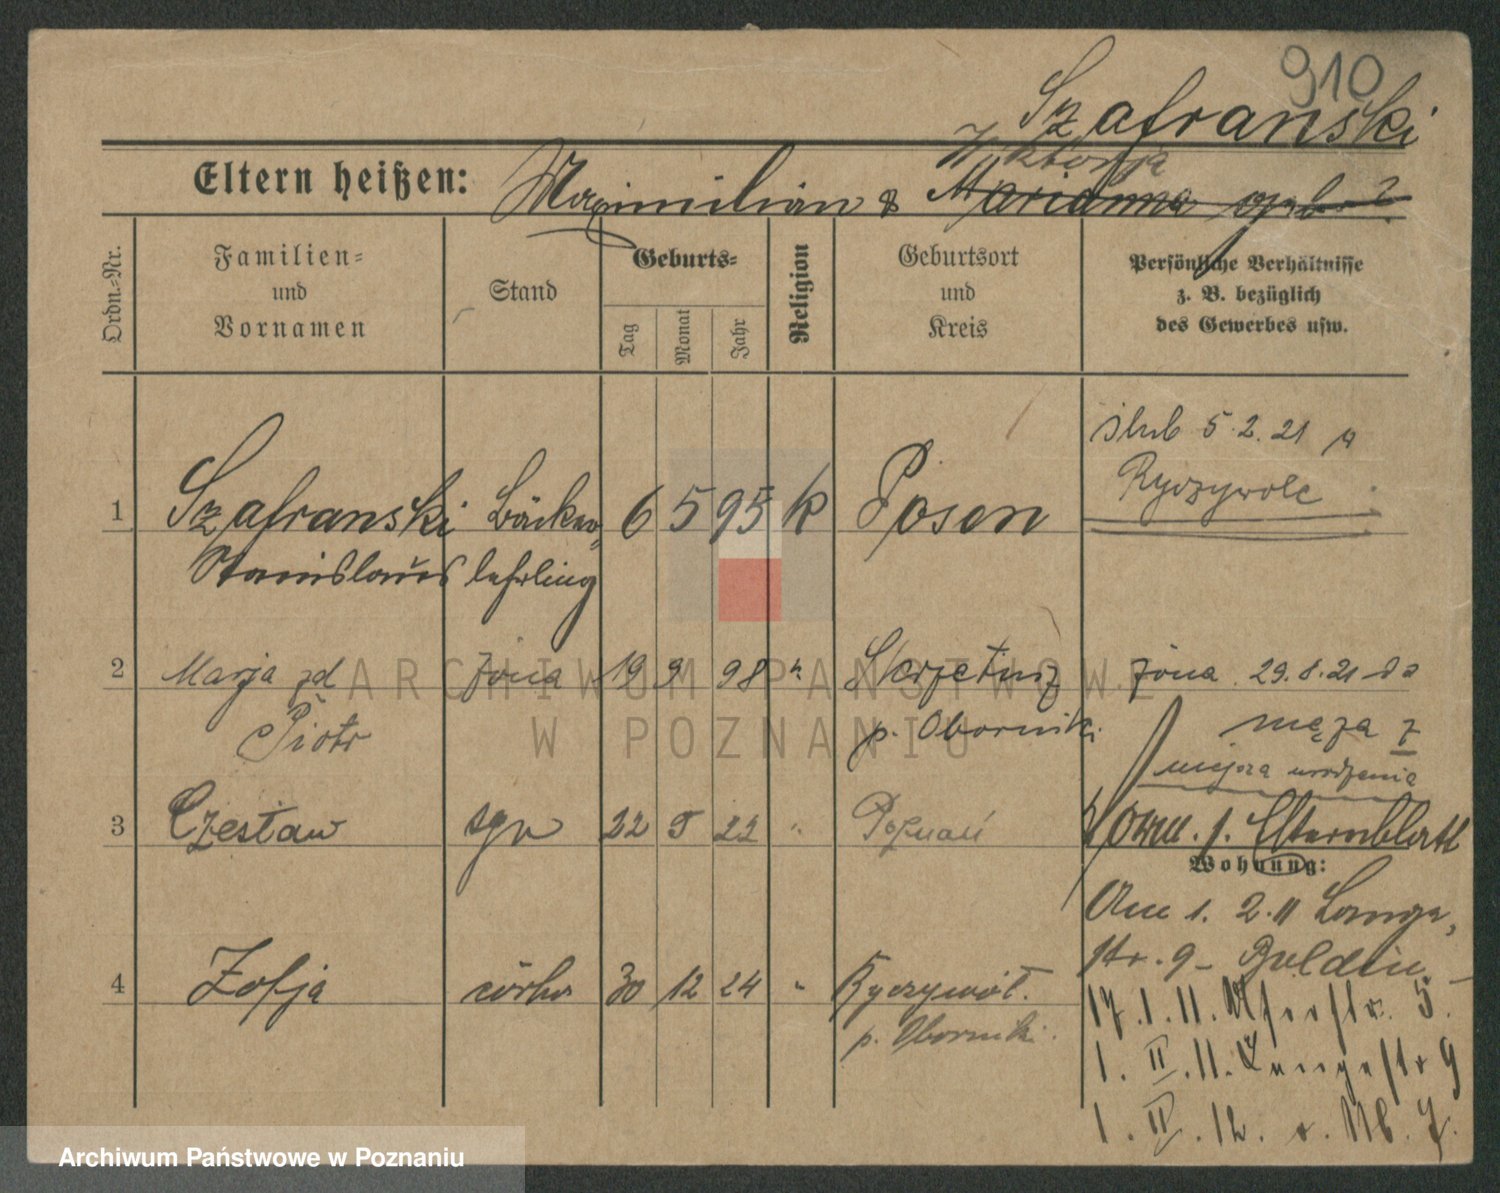 910
Szafranski
Wiktorja
Eltern heißen: Maximilian & Marianna
Ordn.-Nr.
Familien-
und
Vornamen
Stand
Geburts-
Tag
Monat
Jahr
Religion
Geburtsort
und
Kreis
Persönliche Verhältnisse
z. B. bezüglich
des Gewerbes usw.
ślub 5.2.21 w
Ryczywole
1 Szafranski Bäcker- 6 5 95 k Posen
Stanislaus lehrling
2 Marja zd żona 19 9 98 " Skrzetusz żona 29.8.21 do
Piotr p. Oborniki męża z
miejsca urodzenia
3 Czesław syn 22 5 22 " Poznań Vorm. s. Elternblatt
Wohnung:
Am 1. 2. 11 Lange
str. 9
4 Zofja córka 30 12 24 " Ryczywół
p. Oborniki
17.1.11. 5.
1. II. 11. Langestr 9
1. II. 12. 7.
ARCHIWUM PAŃSTWOWE
W POZNANIU
Archiwum Państwowe w Poznaniu